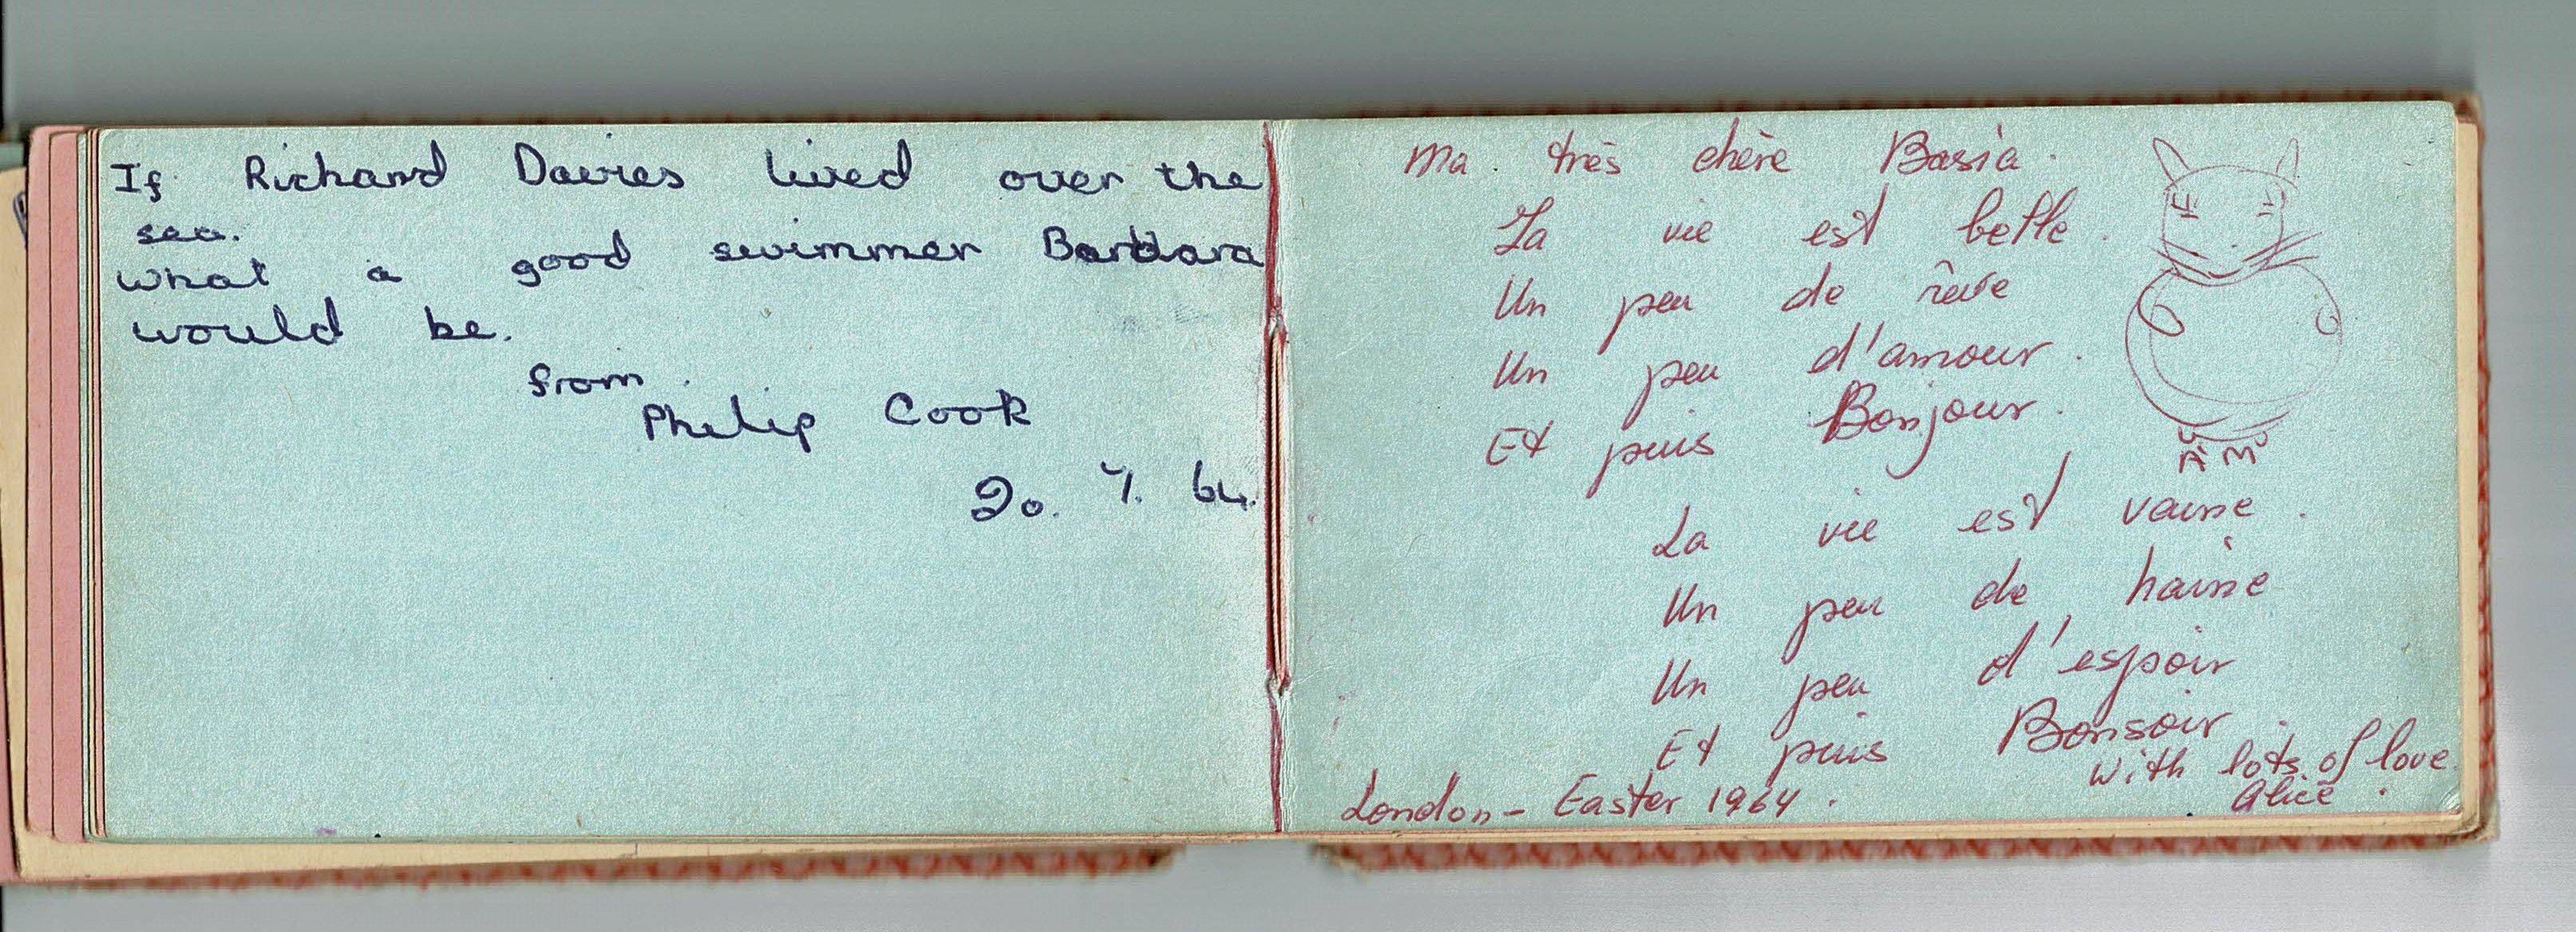 If Richard Davies lived over the
sea.
what a good swimmer Barbara
would be.
from
Philip Cook
20. 7. 64.
Ma très chère Basia.
La vie est belle.
Un peu de rêve
Un peu d'amour.
Et puis Bonjour.
A M
La vie est vaine.
Un peu de haine
Un peu d'espoir
Et puis Bonsoir.
with lots of love
Alice.
London - Easter 1964.